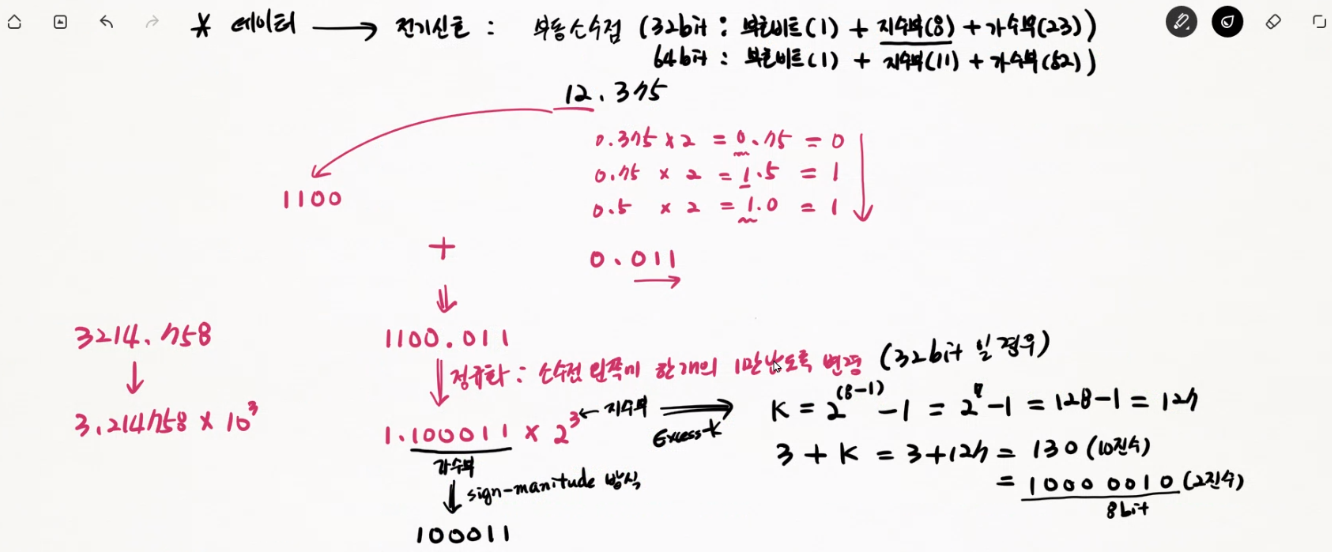 * 데이터 → 전기신호 : 부동소수점 (32bit : 부호비트(1) + 지수부(8) + 가수부(23))
64bit : 부호비트(1) + 지수부(11) + 가수부(52))
12.375
0.375 × 2 = 0.75 = 0
0.75 × 2 = 1.5 = 1
0.5 × 2 = 1.0 = 1
1100
+
0.011
3214.758
1100.011
정규화 : 소수점 왼쪽에 한개의 1만 남도록 변경 (32bit 일 경우)
3.214758 × 10³
1.100011 × 2³ ← 지수부
Excess-K
K = 2⁽⁸⁻¹⁾ - 1 = 2⁷ - 1 = 128 - 1 = 127
3 + K = 3 + 127 = 130 (10진수)
= 1000 0010 (2진수)
8bit
가수부
sign-manitude 방식
100011